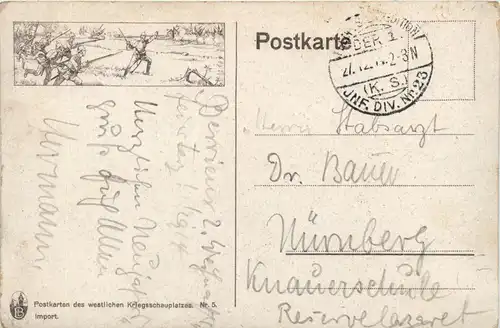 Postkarte
DER 1.
27.12.1 .2-3N
(K. S.)
JNF. DIV. Nr. 23
Herrn Stabsarzt
Dr. Bauer
Nürnberg
Knauerschule
Reservelazaret
2. Weihnachts
feiertag!
Herzlichen Neujahrs
gruß Euch Allen
Hermann.
Postkarten des westlichen Kriegsschauplatzes. Nr. 5.
Import.